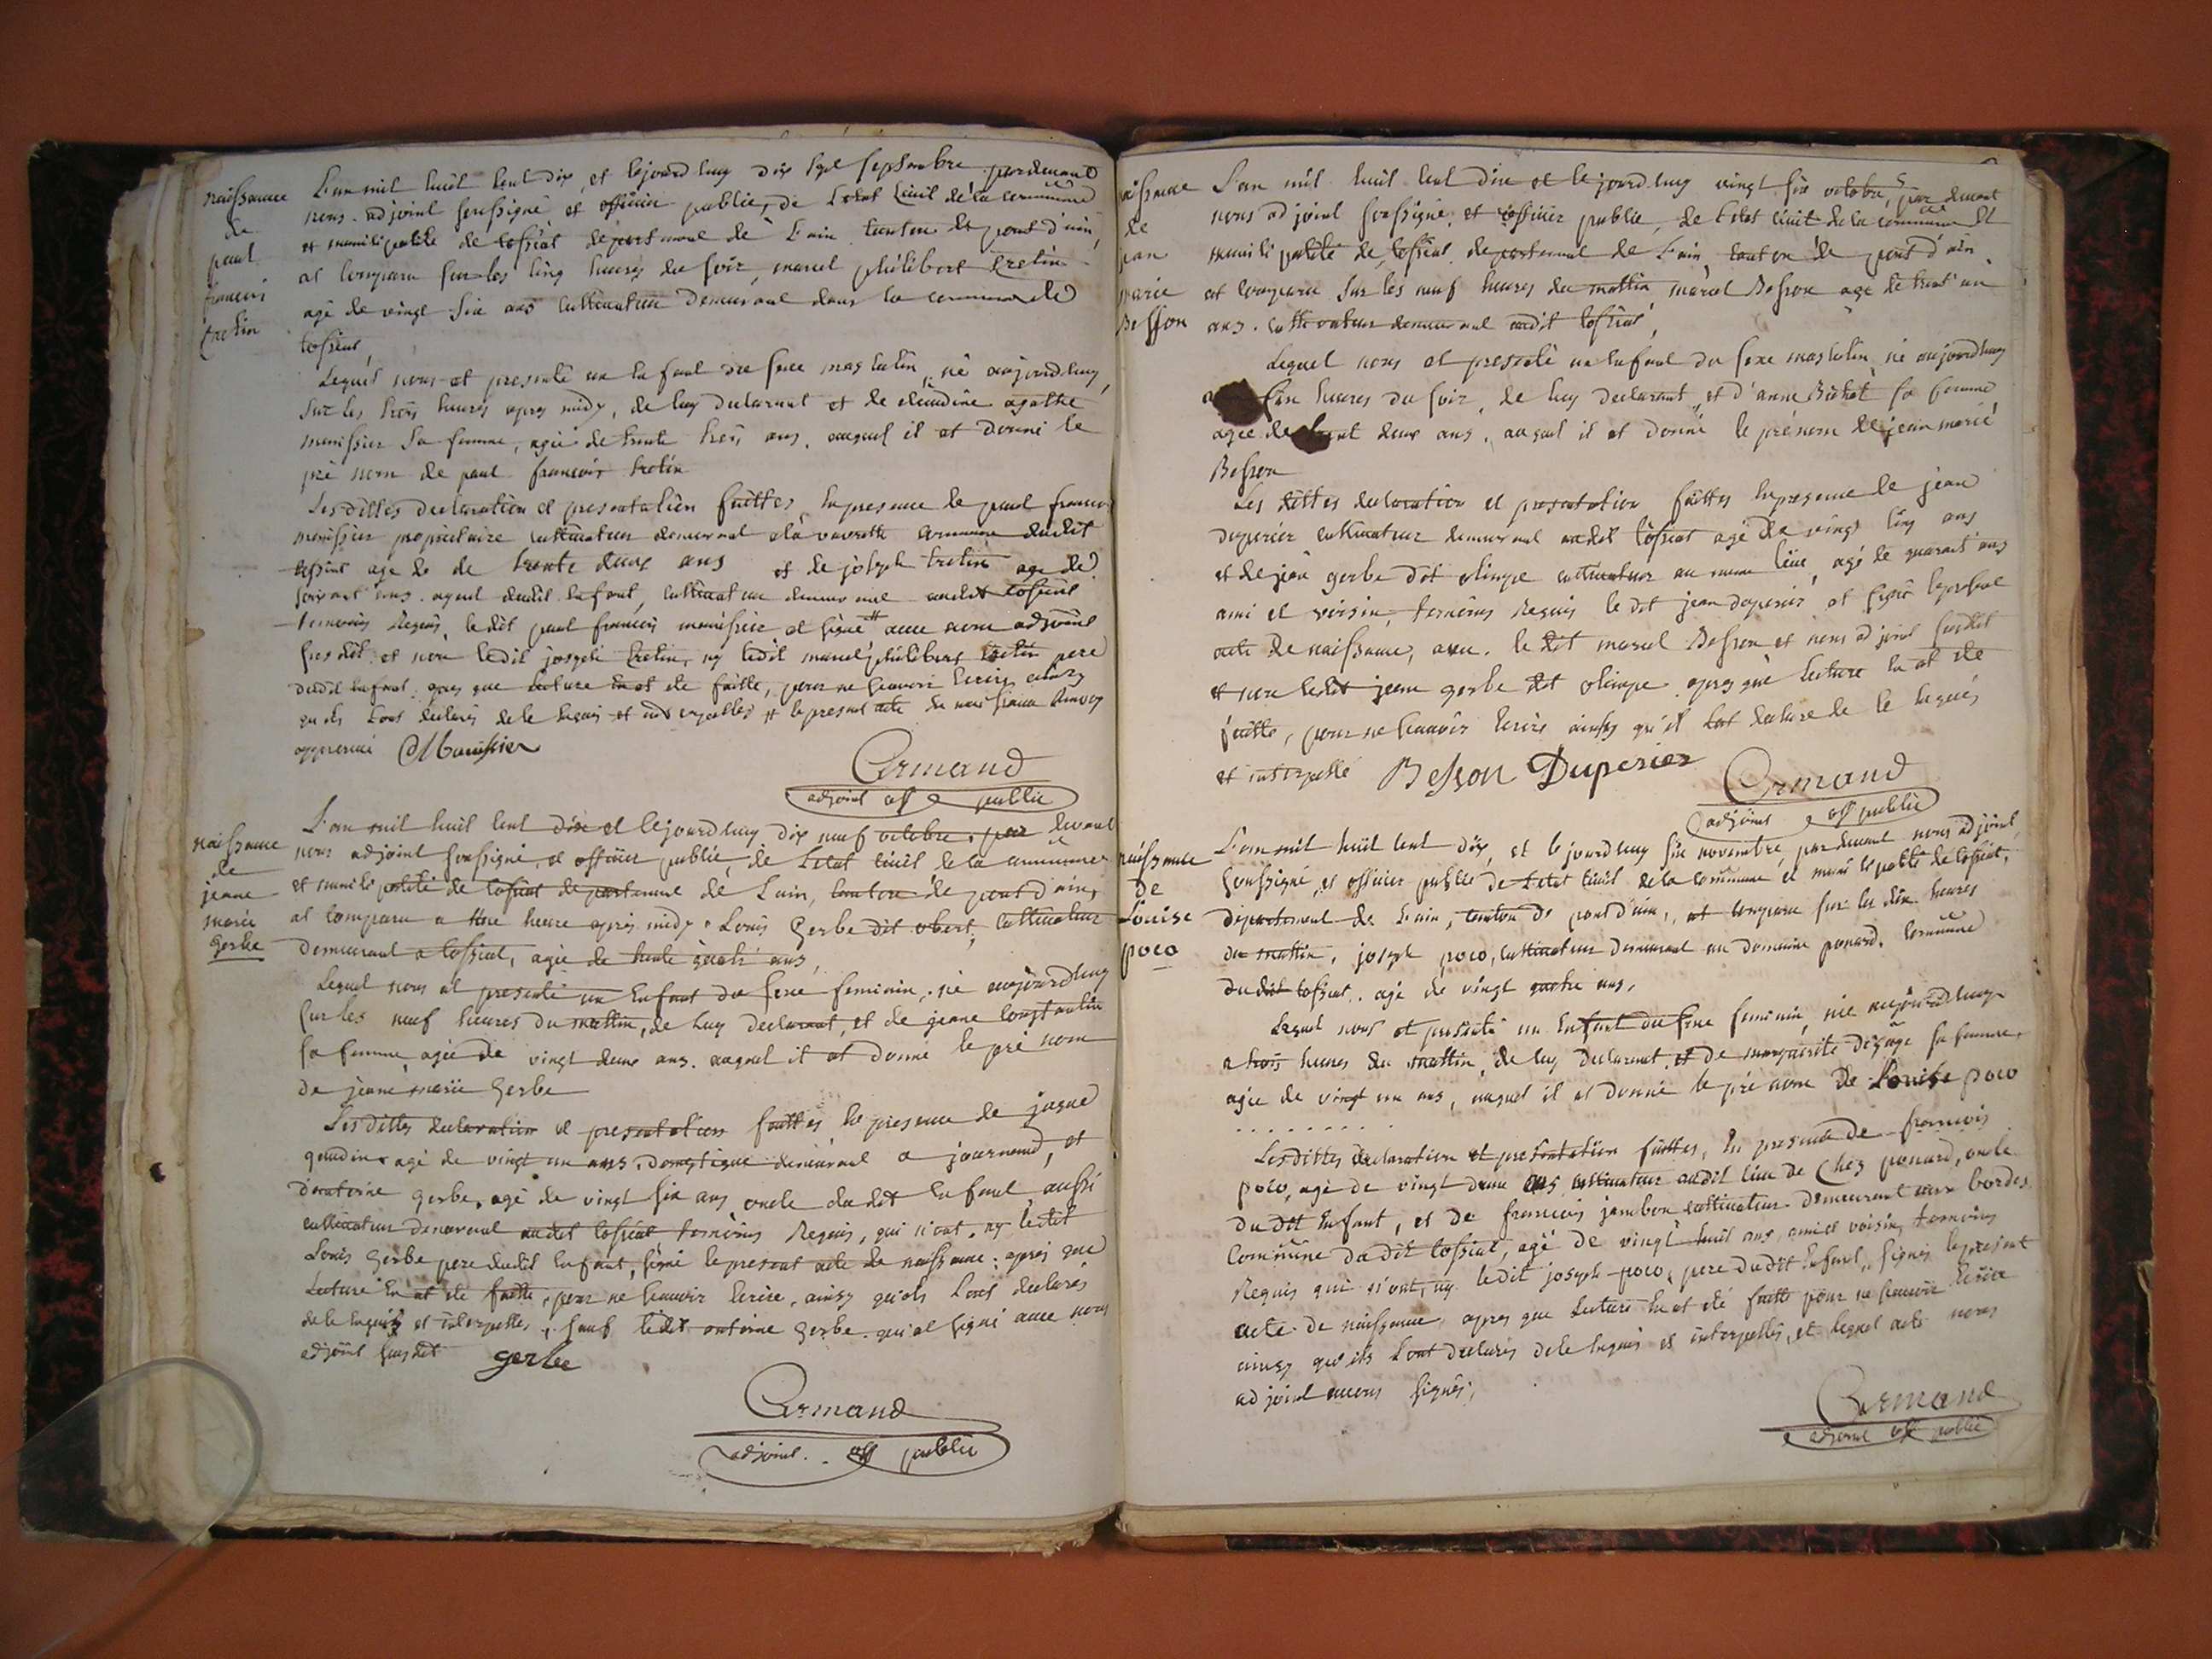 naissance
de
paul
francois
tretin
L'an mil huit cent dix, et lejourd huy dix sept septembre pardevant
nous adjoint soussigné, et officier public, de L'etat Civil de la commune
et municipalité de tossiat departement de L'ain canton de pont d'ain,
at comparu sur les cinq heures du soir, marcel philibert tretin
agé de vingt six ans cultivateur demeurant dans la commune de
tossiat,
Lequel nous at presenté un enfant du sexe masculin, né aujourdhuy,
sur les trois heures apres midy, de luy declarant et de claudine agathe
monissier sa femme, agée de trente trois ans, auquel il at donné le
pré nom de paul francois tretin
Lesdittes declaration et presentation faittes en presence de paul francois
monissier propriétaire cultivateur demeurant à la vavrette commune dudit
tossiat agé de de trente deux ans et de joseph tretin agé de
soixant ans. ayeul dudit enfant, cultivateur demeurant audit tossiat
temoins Requis, ledit paul francois monissier at signé avec nous adjoint
susdit et non ledit joseph tretin, ny ledit marcel philibert tretin pere
dudit enfant, apres que lecture en at eté faitte, pour ne scavoir ecrire ainsy
qu'ils L'ont declarés de le enquis et interpellés
approuvé Monissier
Armand
adjoint off public
naissance
de
jeane
marie
gerbe
L'an mil huit cent dix et lejourd huy dix neuf octobre, par devant
nous adjoint soussigné, et officier public, de L'etat civil de la commune
et municipalité de tossiat departement de L'ain, canton de pont d'ain,
at comparu a une heure apres midy, Louis Gerbe dit obert, cultivateur
demeurant a tossiat, agé de trente quatre ans,
Lequel nous at presenté un Enfant du sexe feminin, né aujourdhuy
sur les neuf heures du mattin, de luy declarant, et de jeane constantin
sa femme, agée de vingt deux ans. auquel il at donné le pré nom
de jeane marie Gerbe
Lesdittes declaration et presentation faittes en presence de jaque
gaudin agé de vingt un ans, domestique demeurant a journand, et
d'antoine gerbe, agé de vingt six ans, oncle dudit enfant, aussi
cultivateur demeurant audit tossiat temoins Requis, qui n'ont, ny ledit
Louis Gerbe pere dudit enfant, signé le present acte de naissance: apres que
Lecture en at eté faitte, pour ne scavoir ecrire, ainsy qu'ils L'ont declarés
de le enquis et interpellés, sauf ledit antoine Gerbe qui at signé avec nous
adjoint susdit gerbe
Armand
adjoint off public
naissance
de
jean
marie
Besson
L'an mil huit cent dix et lejourd huy vingt six octobre, par devant
nous adjoint soussigné, et officier public, de L'etat civil de la commune et
municipalité de tossiat departement de L'ain, canton de pont d'ain
at comparu sur les neuf heures du mattin, marcel Besson agé de trent'un
ans. cultivateur demeurant audit tossiat,
Lequel nous at presenté un enfant du sexe masculin, né aujourdhuy
heures du soir, de luy declarant, et d'anne Bichat sa femme
agée de deux ans, auquel il at donné le prénom de jean marie
Besson
Les dittes declaration et presentation faittes en presence de jean
duperier cultivateur demeurant audit tossiat agé de vingt cinq ans
et de jean gerbe dit olimpe cultivateur au meme lieu, agé de quarant'ans
ami et voisin, temoins Requis le dit jean duperier at signé le present
acte de naissance, avec le dit marcel Besson et nous adjoint susdit
et non ledit jean gerbe dit olimpe apres que lecture en at eté
faitte, pour ne scavoir ecrire ainsy qu'il L'at declaré de le enquis
et interpellé Besson Duperier
Armand
adjoint off public
naissance
de
Louise
poco
L'an mil huit cent dix, et le jourd huy six novembre, pardevant nous adjoint
soussigné, et officier public de L'etat civil de la commune et municipalité de tossiat,
departement de L'ain, canton de pont d'ain, at comparu sur les dix heures
du mattin, joseph poco, cultivateur demeurant au domaine ponard, commune
dudit tossiat, agé de vingt quatre ans,
Lequel nous at presenté un enfant du sexe feminin, née aujourdhuy
a trois heures du mattin, de luy declarant, et de marguerite sa femme,
agée de vingt un ans, auquel il at donné le pré nom de Louise poco
. . . . . . . .
Lesdittes declaration et presentation faittes, en presence de francois
poco, agé de vingt deux ans cultivateur audit lieu de chez ponard, oncle
dudit enfant, et de francois jambon cultivateur demeurant aux bordes
commune dudit tossiat, agé de vingt huit ans, ami et voisin, temoins
Requis qui n'ont, ny ledit joseph poco, pere dudit Enfant, signés le present
acte de naissance, apres que lecture en at eté faitte pour ne scavoir Ecrire
ainsy qu'ils L'ont declarés de le enquis et interpellés, et lequel acte nous
adjoint avons signés,
Armand
adjoint off public